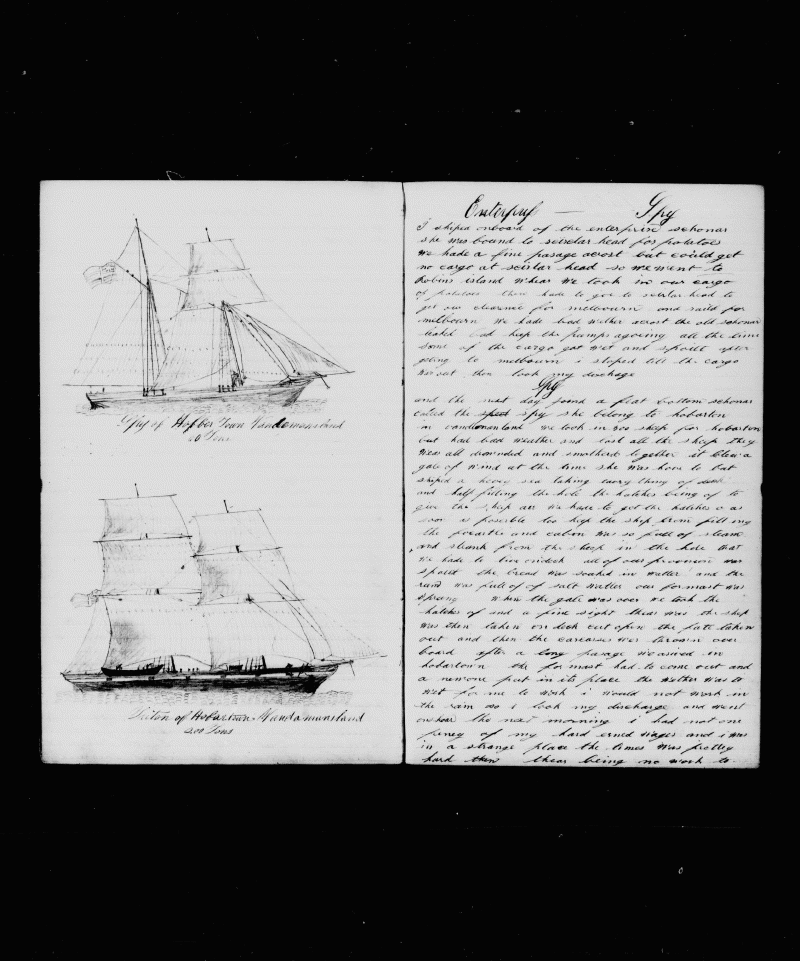 Spy of Hobber Town Vandemansland
40 Tons
Triton of Hobartown Vandamunsland
200 Tons
Enterpris — Spy
I shiped onboard of the enterprise schonar
she was bound to sircular head for potatoes
we hade a fine pasage acrost but could get
no cargo at head so we went to
Robins island whear we took in our cargo
of potatoes then hade to goe to head to
get our clearence for melbourn and saild for
melbourn We hade bad wether acrost the old schonar
leaked bad kep the pumps agoeing all the time
some of the cargo got wet and spoilt after
geting to melbourn i stoped till the cargo
was out then took my discharge
Spy
and the next day found a flat bottom schonar
called the spy she belong to hobarton
in vandiemanland we took in 200 sheep for hobarton
but had bad weather and lost all the sheep they
wear all drownded and smotherd together it blew a
gale of wind at the time she was hove to but
shiped a heavy sea taking every thing of deck
and half filling the hole the hatches being of to
give the sheep air we hade to get the hatches on as
soon as posible too kep the ship from filling
the forcastle and cabin was so full of steam
and stunk from the sheep in the hole that
we hade to live ondeck all of our provision was
spoilt the bread was soaked in watter and the
rum was full of salt watter our formast was
sprung When the gale was over we took the
hatches of and a fine sight thear was the sheep
was then taken on deck cut open the fatt taken
out and then the carcases was thrown over
board after a long pasage we arived in
hobartown the formast had to come out and
a new one put in its place the wether was to
wet for me to work i would not work in
the rain so i took my discharge and went
onshoar the next morning i had not one
peney of my hard erned wages and i was
in a strange place the times was prettey
hard then thear being no work to